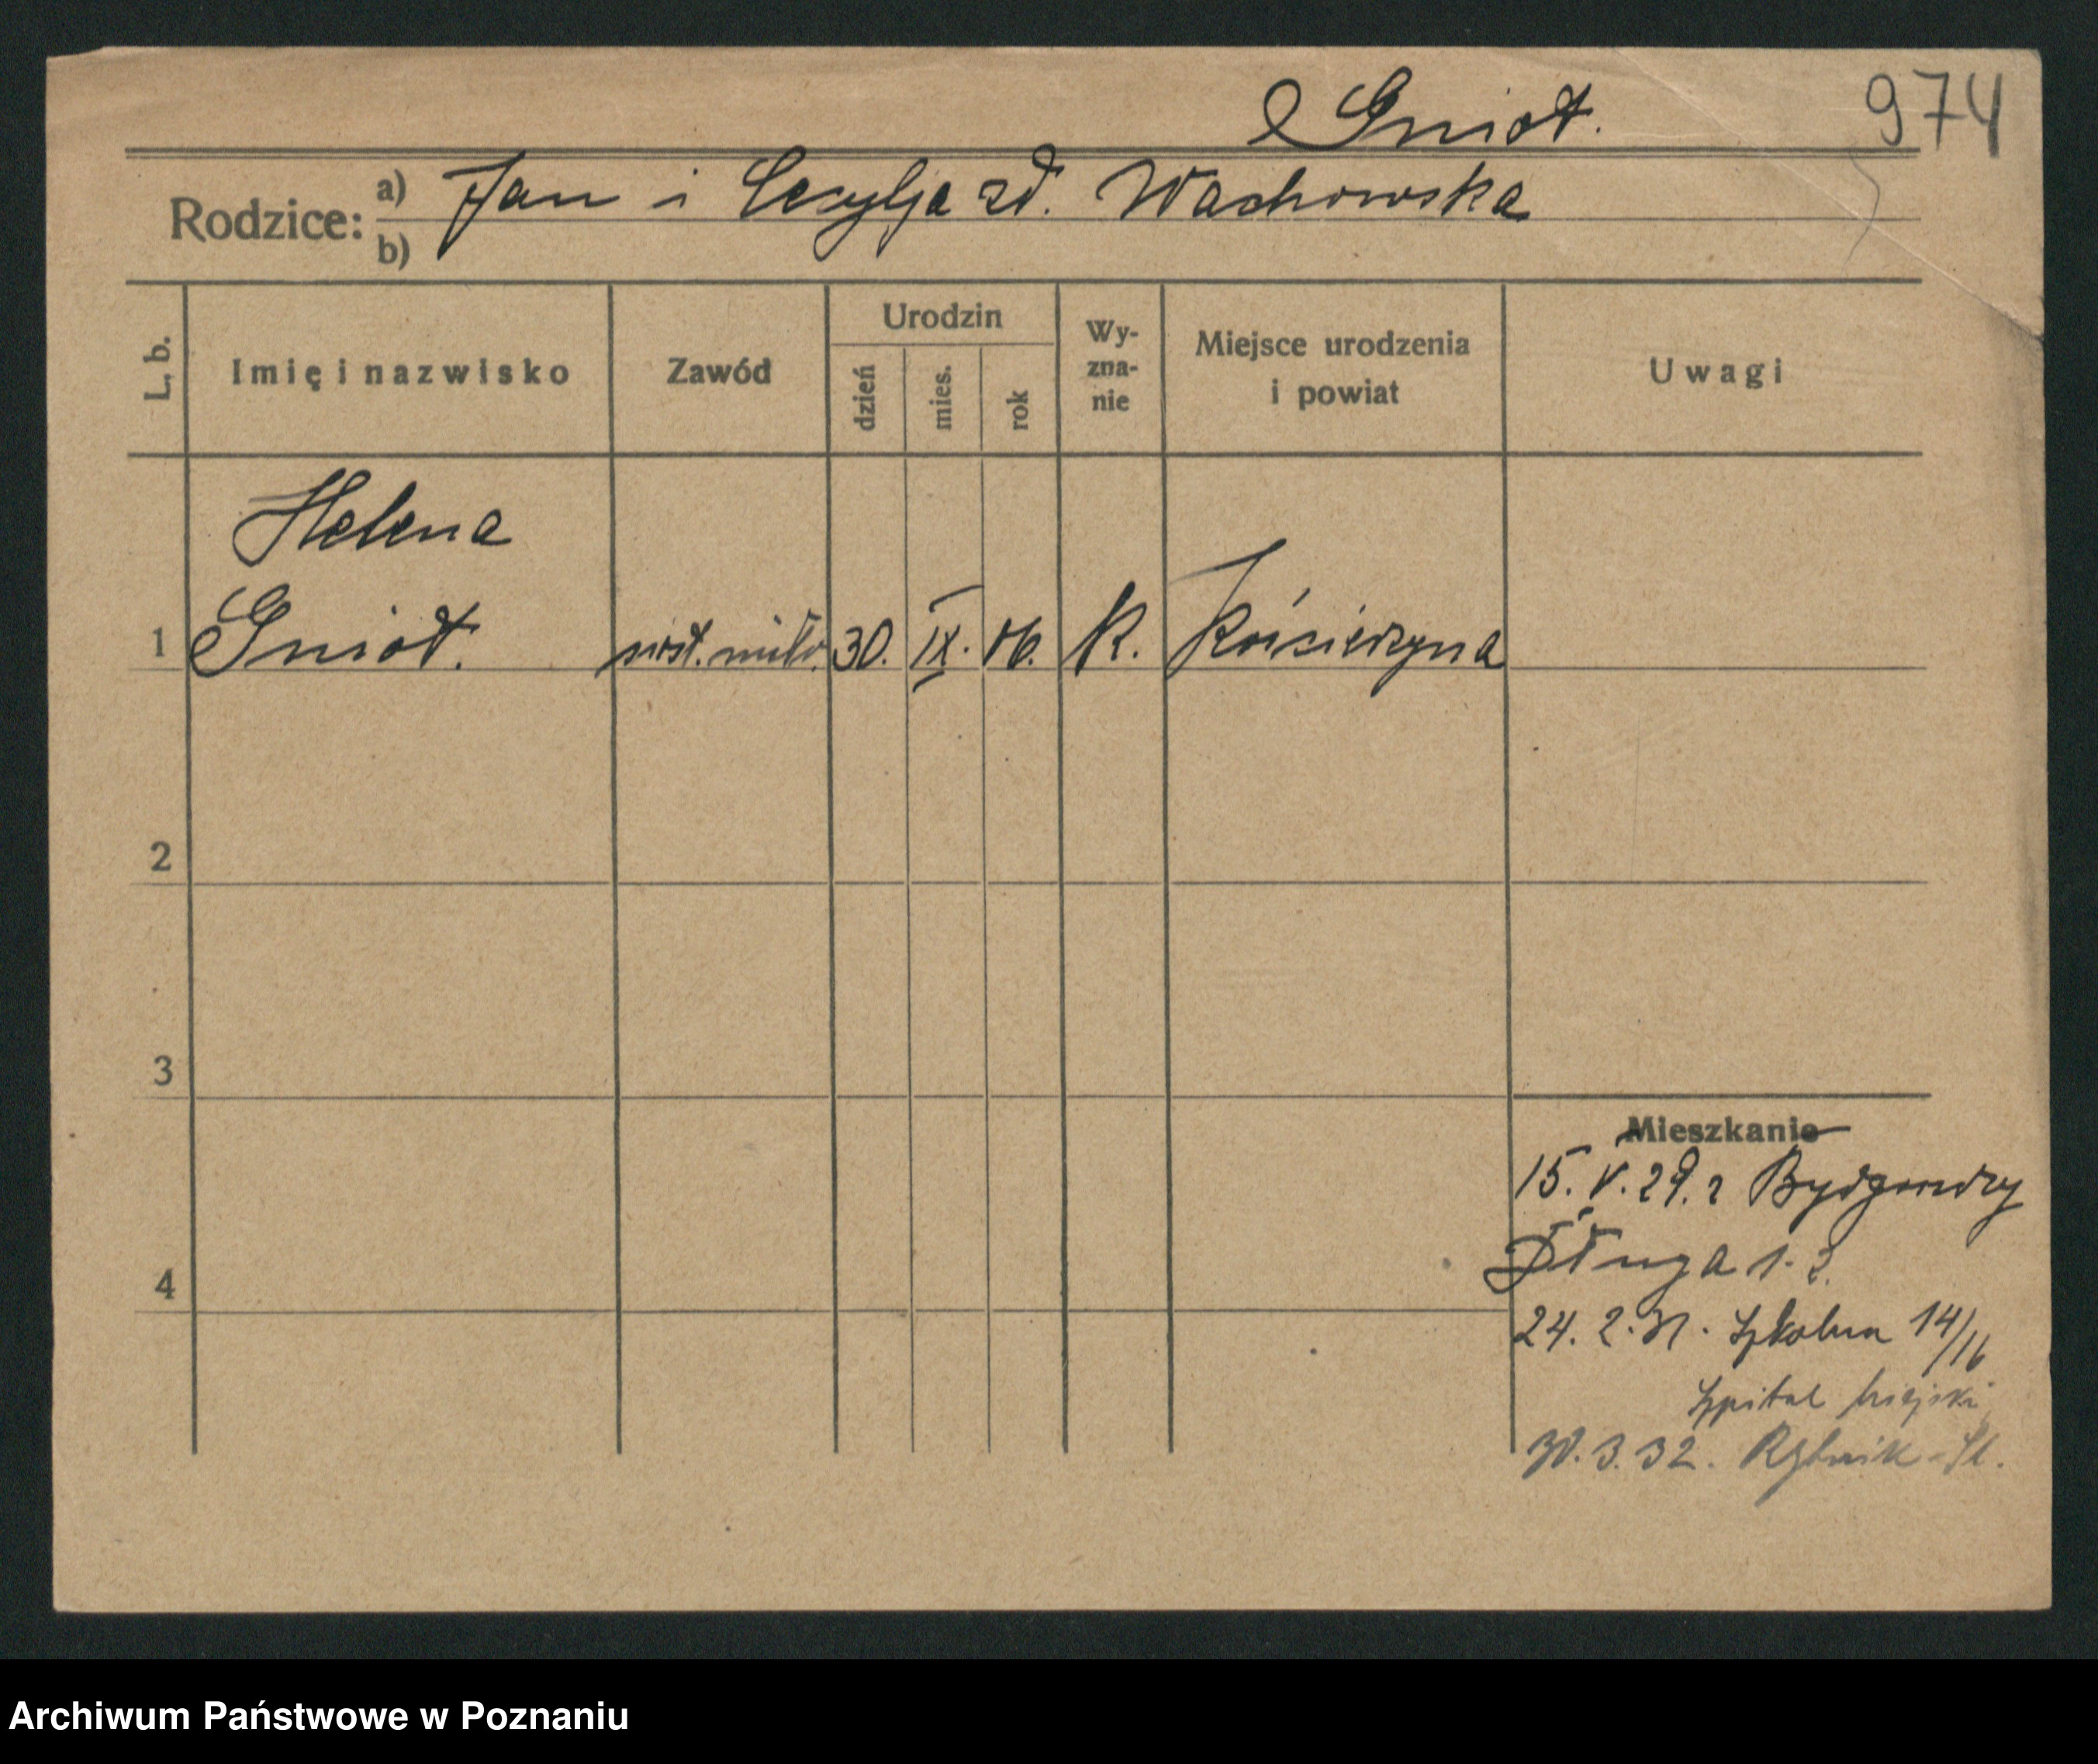 Gniot. 974
Rodzice: a) Jan i Cecylja zd. Wachowska
b)
L. b. Imię i nazwisko Zawód Urodzin dzień mies. rok Wy-zna-nie Miejsce urodzenia i powiat Uwagi
Helena
1 Gniot. siost. miło. 30. IX. 06. K. Kościerzyna
2
3
Mieszkanie
15. V. 29. z Bydgoszczy
Długa 1. 2.
4
24. 2. 31. Szkolna 14/16
Szpital Miejski
30. 3. 32. Rybnik - Śl.
Archiwum Państwowe w Poznaniu